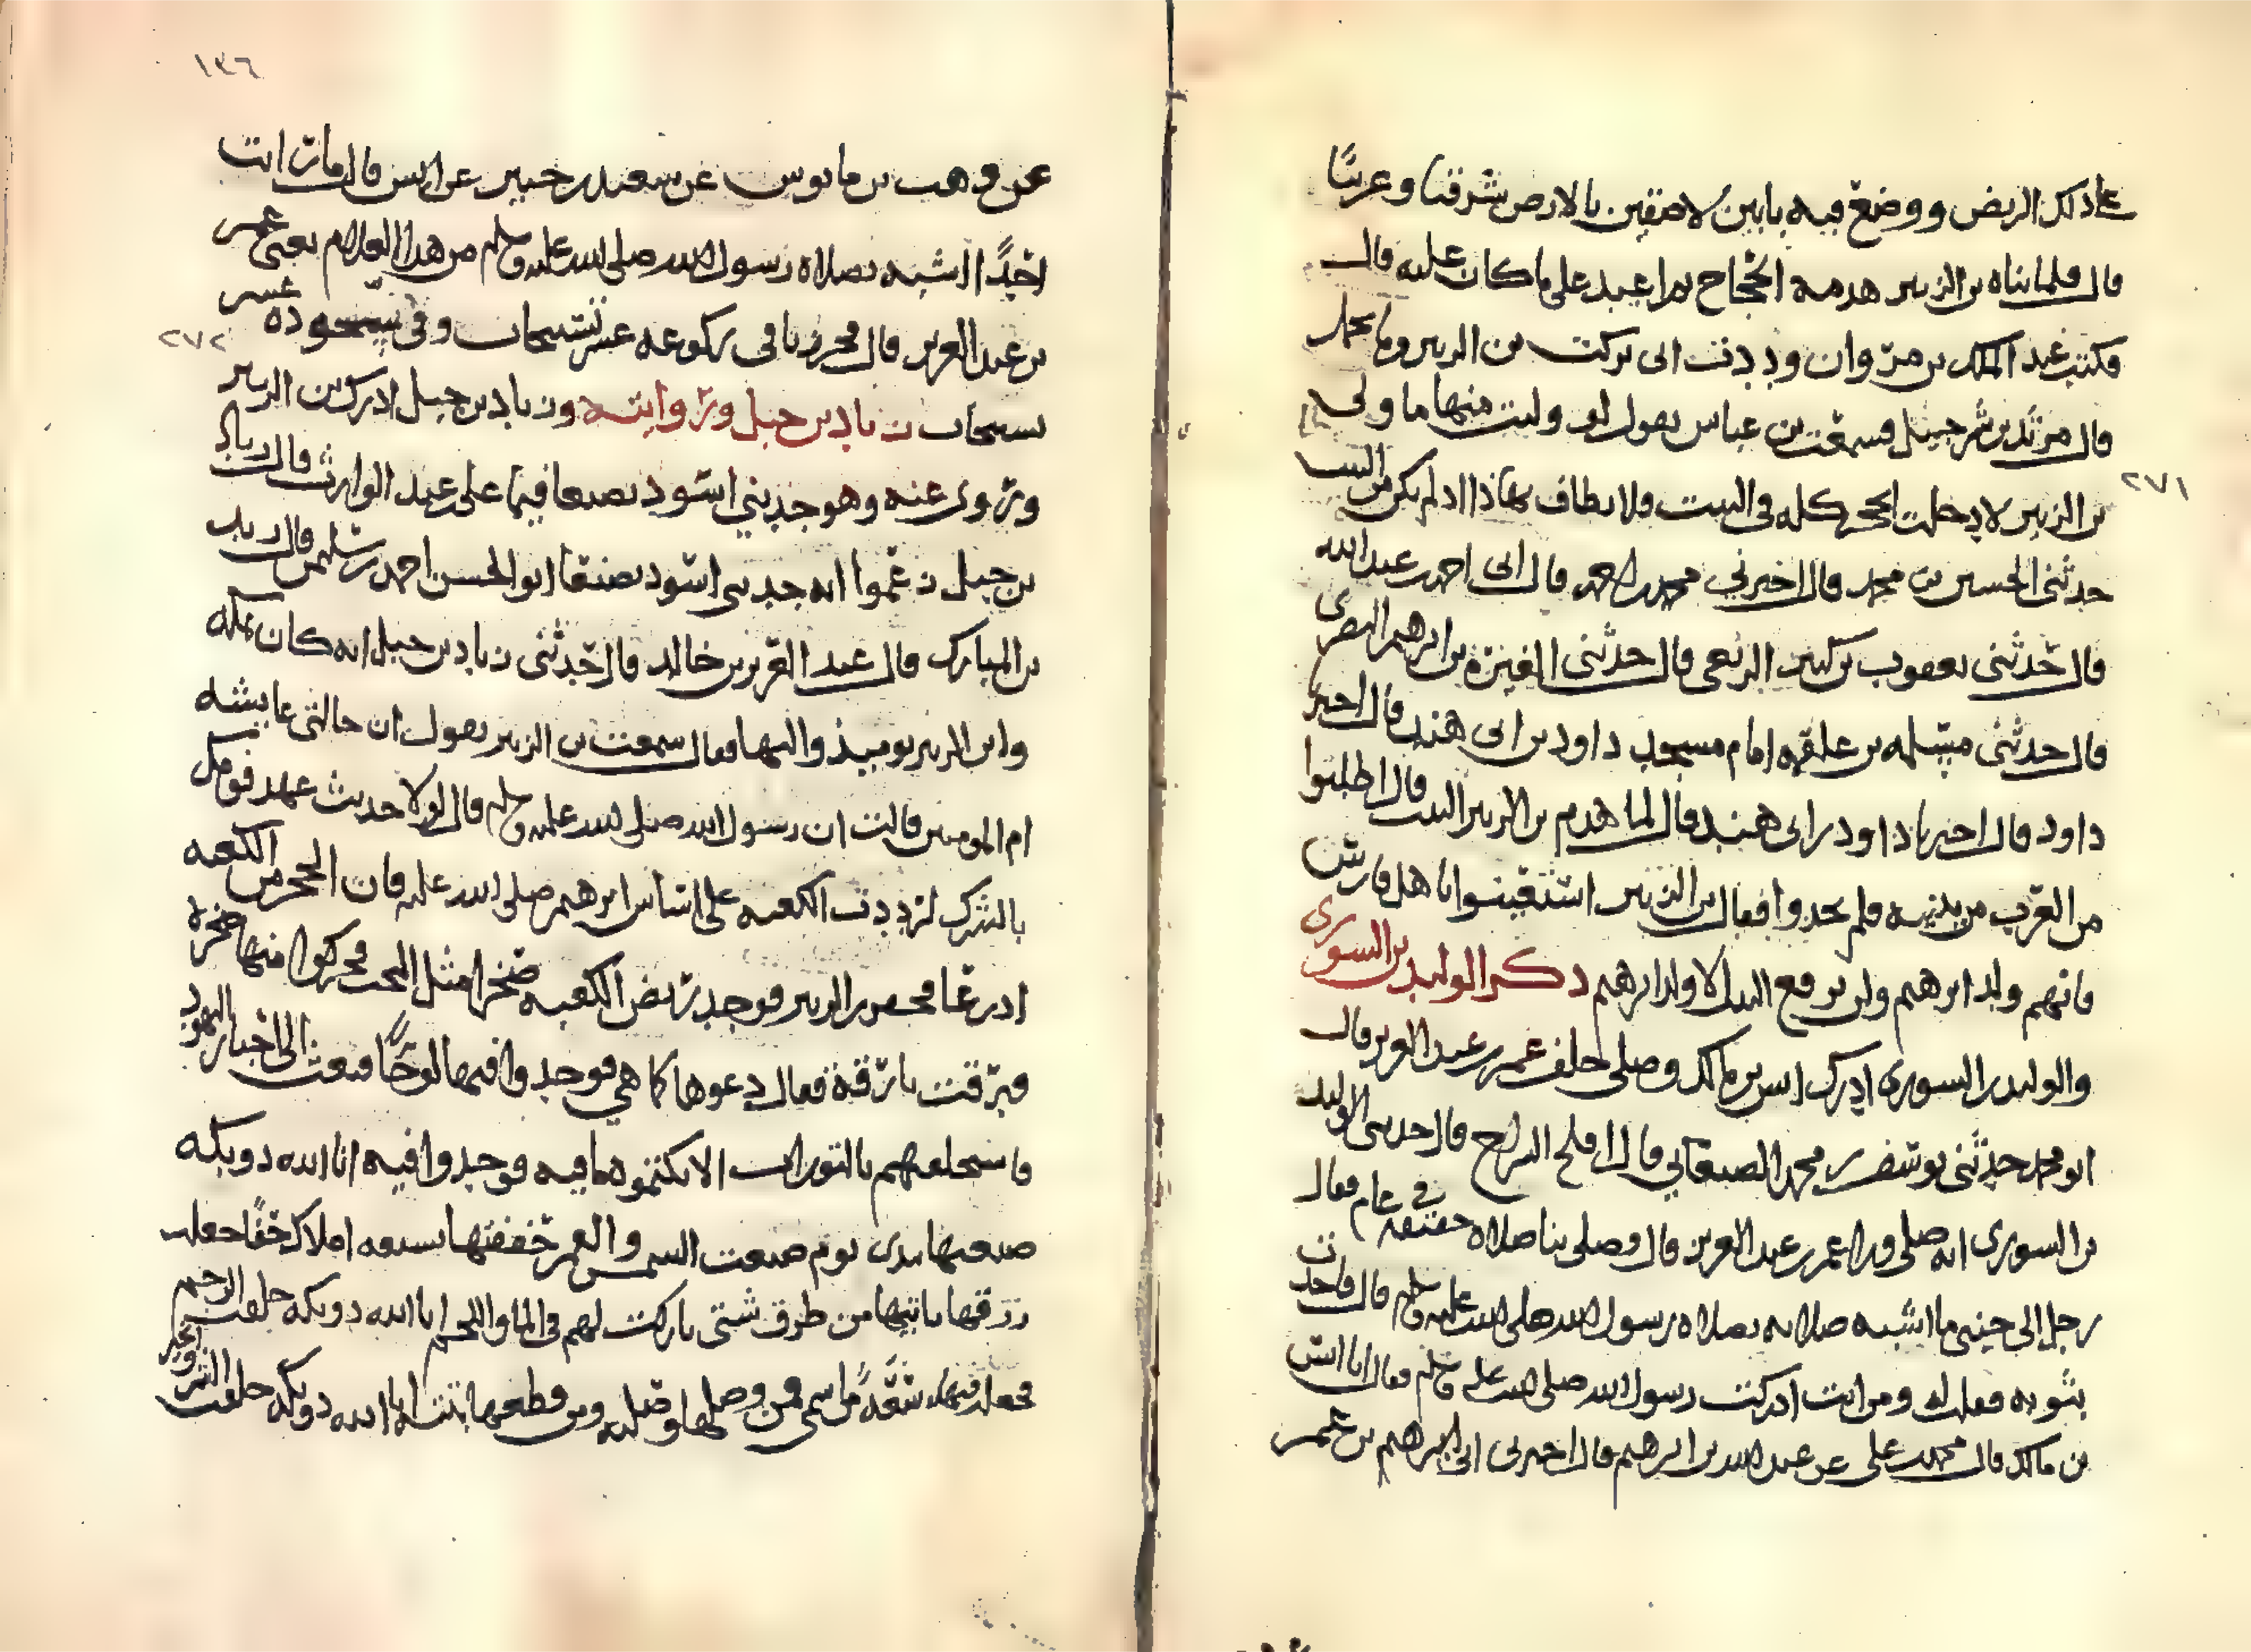 على ذلك الربض ووضع فيه بابين لاصقين بالارض شرقيا وغربيا
قال فلما بناه بن الزبير هدمه الحجاج ثم اعيد على ما كان عليه قال
فكتب عبد الملك بن مروان وددت انى تركت بن الزبير وما تحمل
قال مرثد بن شرحبيل فسمعت بن عباس يقول لو وليت منها ما ولى
بن الزبير لادخلت الحجر كله فى البيت فلم يطاف به اذا لم يكن من البيت
٢٧١
حدثنى الحسين بن محمد قال اخبرني محمد بن احمد قال انى احمد بن عبد الله
قال حدثنى يعقوب بن كبير الربعى قال حدثنى المغيرة بن ابرهيم البصرى
قال حدثنى مسلمه بن علقمه امام مسجد داود بن ابى هند قال اخبر
داود قال اخبرنا داود بن ابى هند قال لما هدم بن الزبير البيت قال اطلبوا
من العرب من يبنيه فلم يجدوا فقال بن الزبير استعينوا باهل فارس
فانهم ولد ابرهيم ولن يرفع البيت الا ولد ابرهيم ذكر الوليد بن السورى
والوليد بن السورى ادرك انس بن مالك وصلى خلف عمر بن عبد العزيز قال
ابو محمد حدثنى يوسف بن محمد الصنعاني قال افلح السراج قال حدثنى الوليد
بن السورى انه صلى ورا عمر بن عبد العزيز قال وصلى بنا صلاة خفيفه فى عام فقال
رجل الى جنبى ما اشبه صلاته بصلاة رسول الله صلى الله عليه وسلم قال فاخذت
بثوبه فقلت له ومن انت ادركت رسول الله صلى الله عليه وسلم فقال انا انس
بن مالك قال محمد بن على عن عبد الله بن ابرهيم قال اخبرنى ابى ابرهيم بن عمر
١٣٦
عن وهب بن مانوس عن سعيد بن جبير عن انس قال ما رايت
احدا اشبه بصلاة رسول الله صلى الله عليه وسلم من هذا الغلام يعنى عمر
بن عبد العزيز قال فحزرنا فى ركوعه عشر تسبيحات وفى سجوده عشر
٢٧٢
تسبيحات زياد بن جيل وروايته وزياد بن جيل ادرك بن الزبير
وروى عنه وهو جد بني اسود بصنعا فيما على عبد الوارث قال زياد
بن جيل زعموا انه جد بنى اسود بصنعا ابو الحسن احمد بن سليمن قال زيد
بن المبارك قال عبد العزيز بن خالد قال حدثنى زياد بن جيل انه كان بمكه
وابن الزبير يوميذ واليها فقال سمعت بن الزبير يقول ان خالتى عايشه
ام المومنين قالت ان رسول الله صلى الله عليه وسلم قال لولا حديث عهد قومك
بالشرك لرددت الكعبه على اساس ابرهيم صلى الله عليه فان الحجر من الكعبه
اذرعا فحفر بن الزبير فوجد ربض الكعبه صخرا مثل البخت فحركوا منها صخرة
فبرقت بارقة فقال دعوها كما هي فوجدوا فيها لوحا فبعث الى احبار اليهود
فاستحلفهم بالتوراة الا يكتموه ما فيه فوجدوا فيه انا الله ذو بكه
صنعتها بيدى يوم صنعت الشمس والقمر حففتها بسبعه املاك حفا جعلت
رزقها ياتيها من طرق شتى باركت لهم فى الما واللحم انا الله ذو بكه خلقت الرحم
فجعلت فيها شقة من اسمى فمن وصلها وصلته ومن قطعها بتته انا الله ذو بكه خلقت الشر والخير